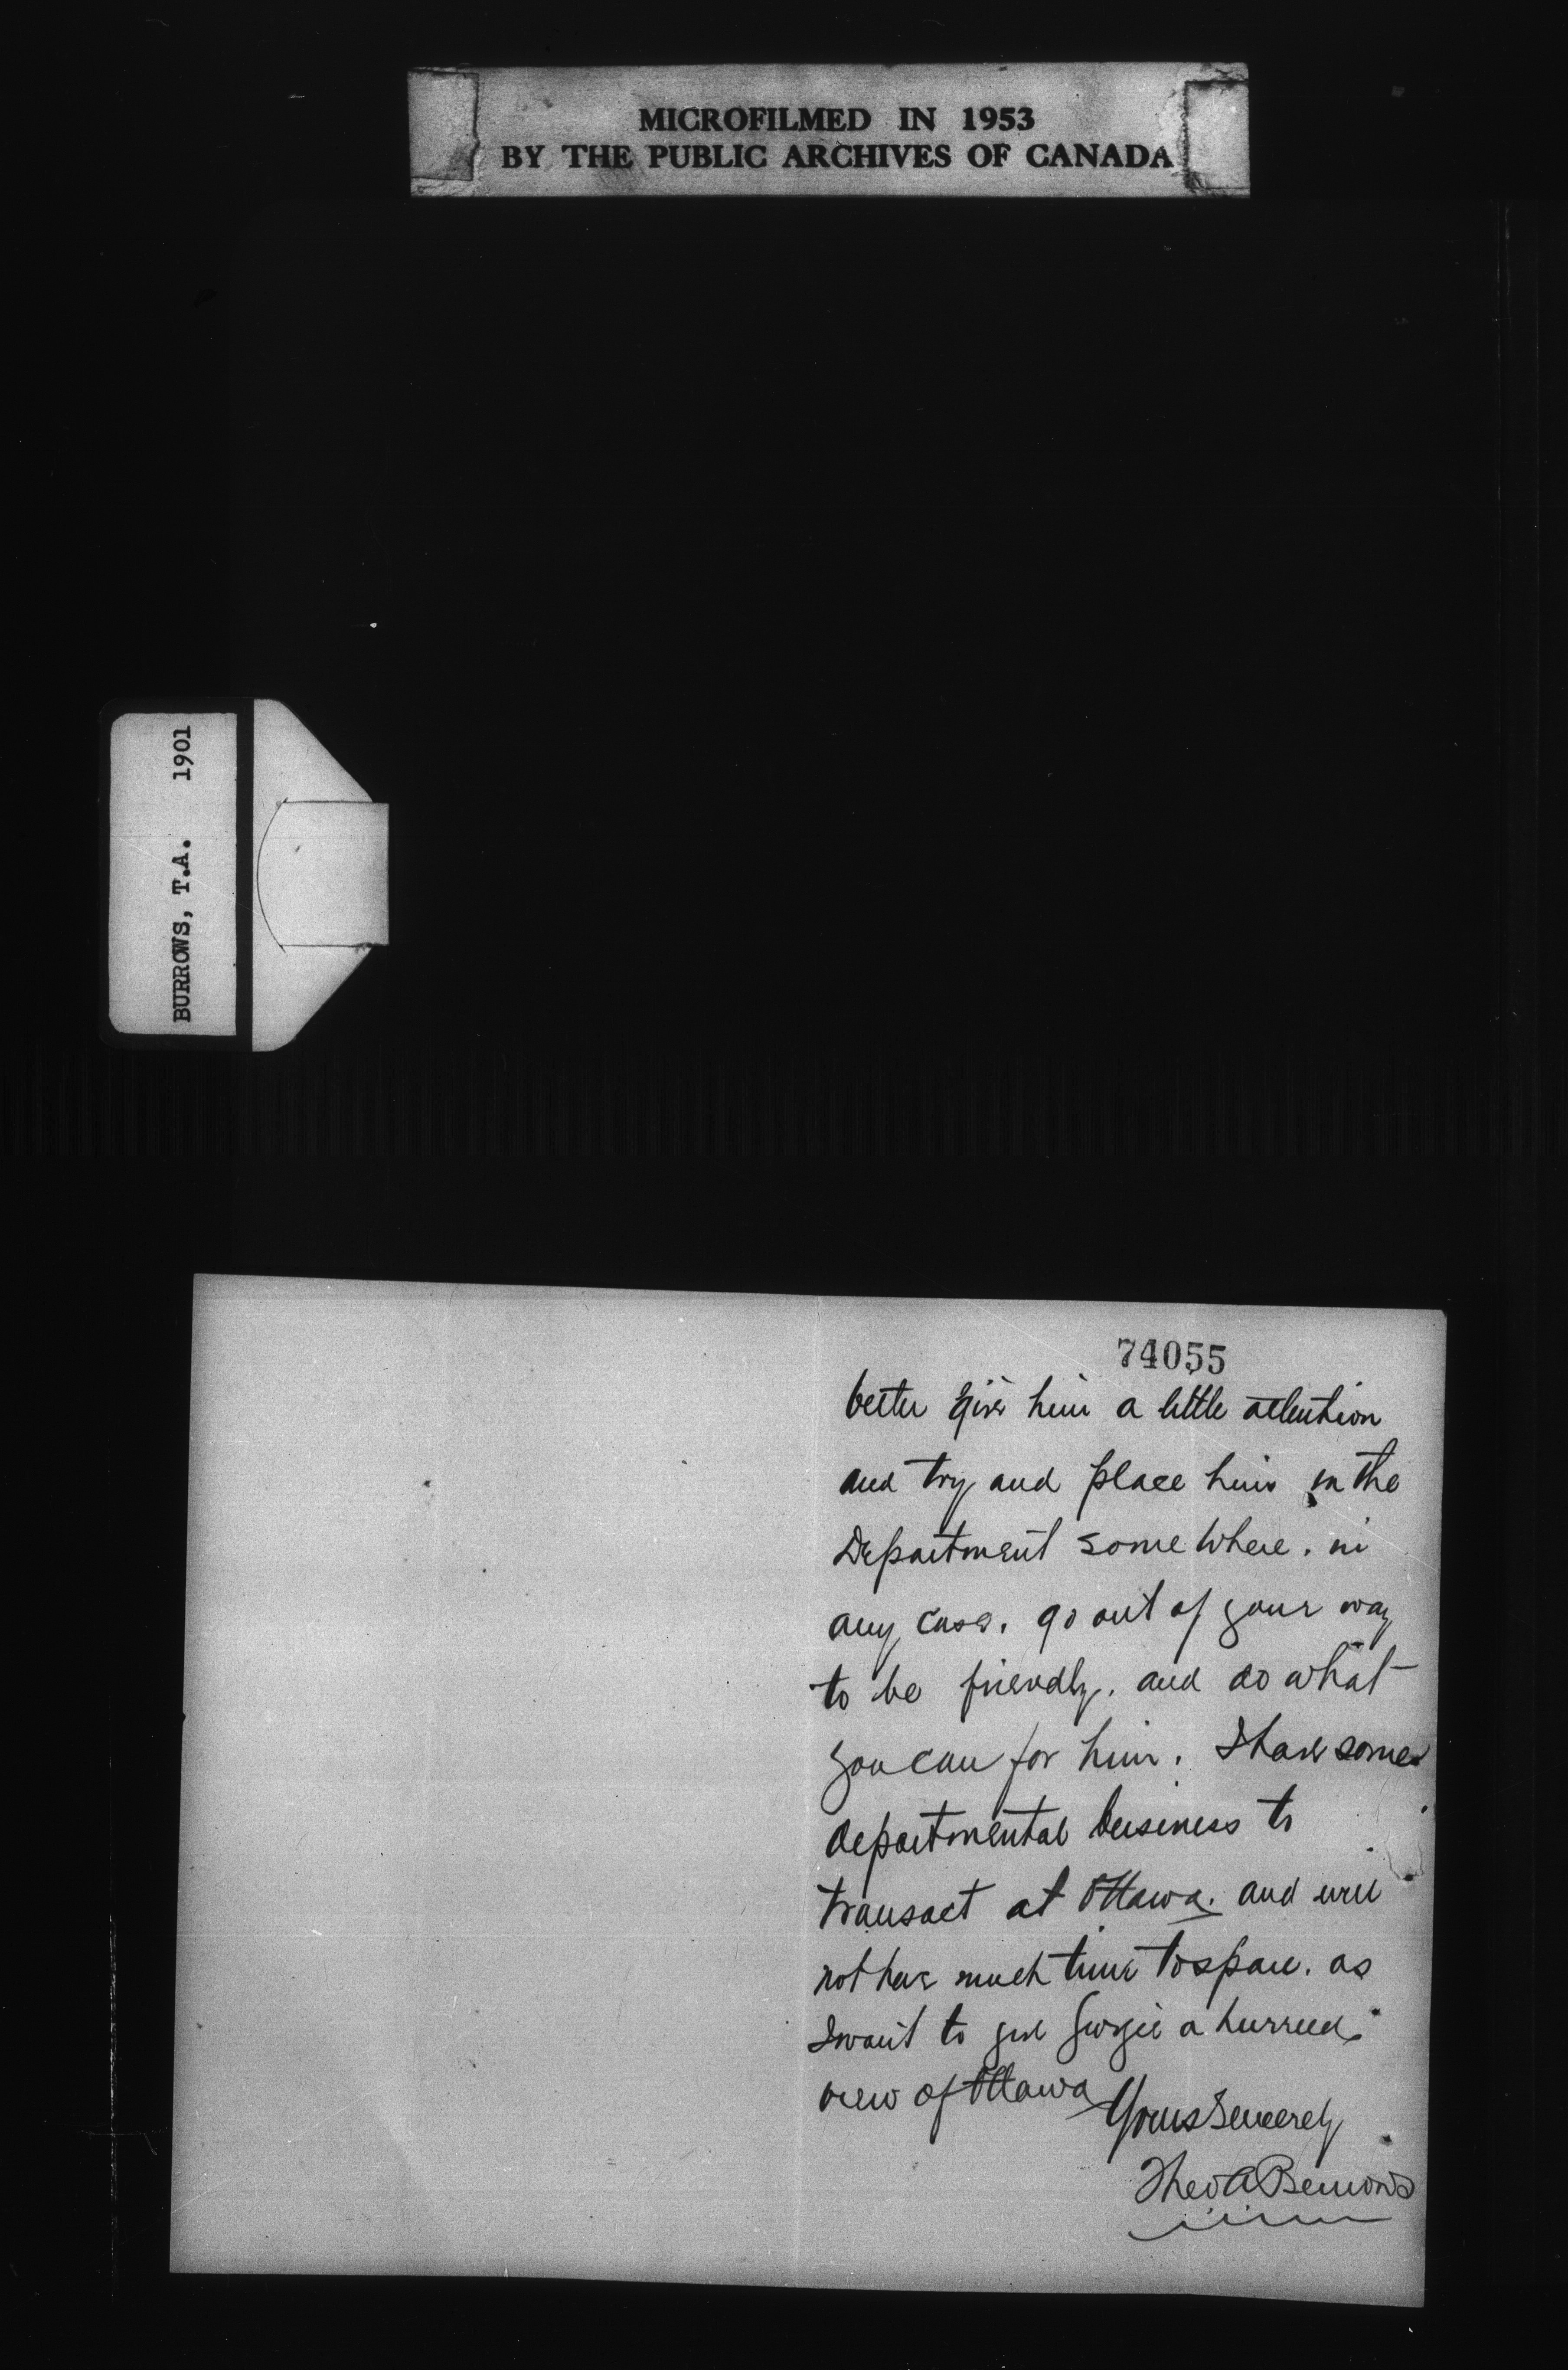 MICROFILMED IN 1953
BY THE PUBLIC ARCHIVES OF CANADA
BURROWS, T.A. 1901
74055
better give him a little attention
and try and place him in the
Department some where. in
any case. go out of your way
to be friendly. and do what
you can for him. I have some
departmental business to
transact at Ottawa. and will
not have much time to spare. as
I want to give Georgie a hurried
view of Ottawa
Yours Sincerely
Theo A Burrows